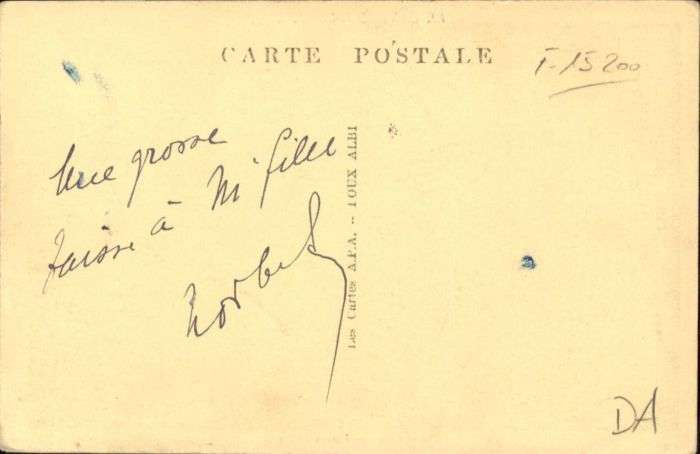 CARTE POSTALE
T-15200
Une grosse
baise à M' fille
Norbert
Les Cartes A.P.A. - POUX ALBI
DA